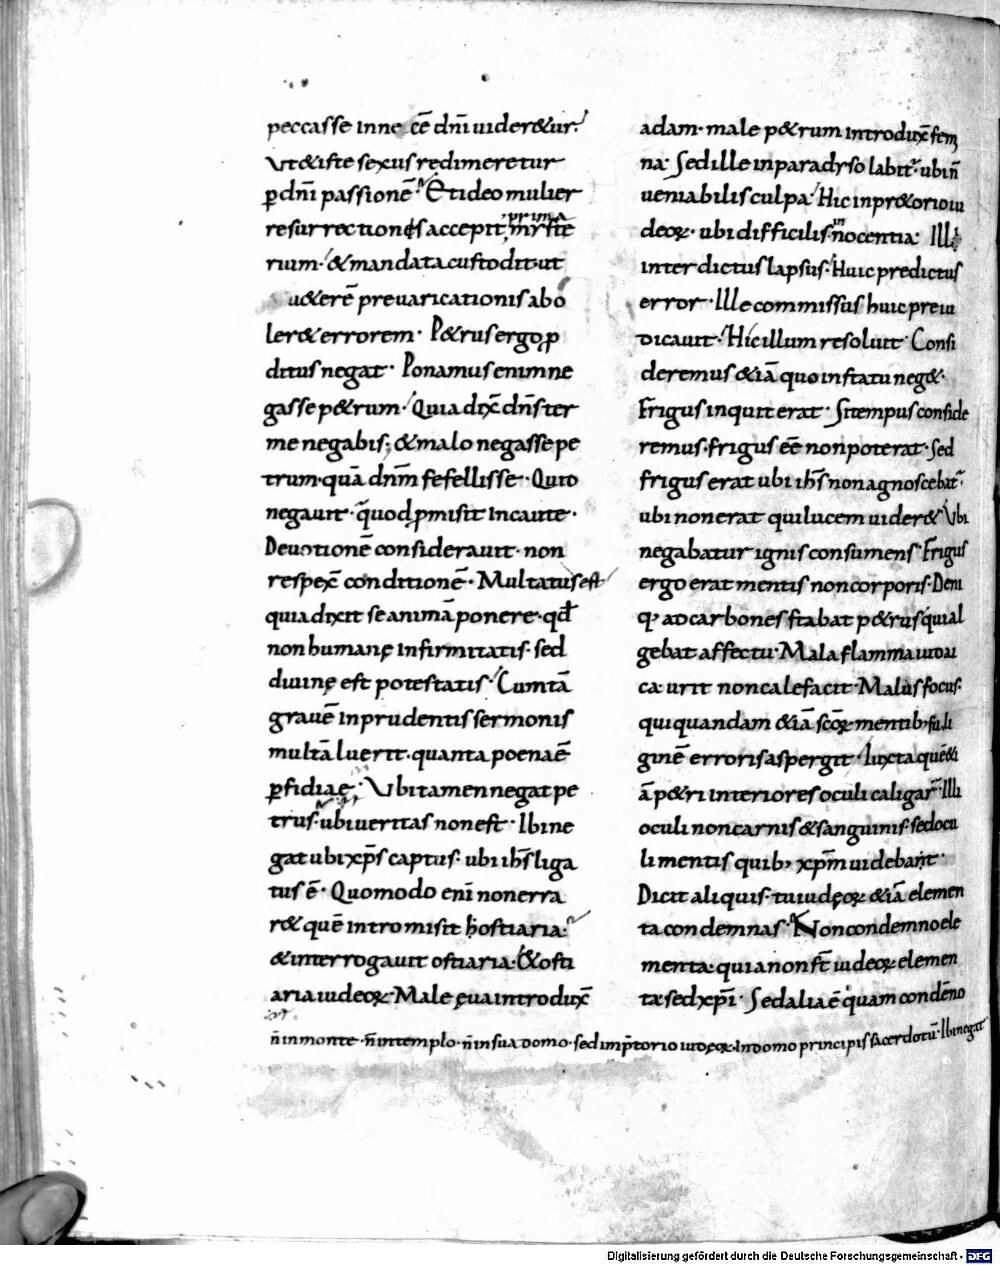 peccasse inne cē dn̄i uider&ur.
Vt & iste sexus redimeretur
ꝑ dn̄i passionē. Et ideo mulier
prima
resurrectionis accepit mẏste
rium. & mandata custodit ut
u&erē preuaricationis abo
ler& errorem. P&rus ergo ꝓ
ditus negat. Ponamus enim ne
gasse p&rum. Quia dix̄ dn̄s ter
me negabis; & malo negasse pe
trum. quā dn̄m fefellisse. Quio
negauit. q̄uod ꝓmisit incaute.
Deuotionē considerauit. non
respex̄ conditionē. Multatus est
quia dixit se animā ponere. qđ
non humanę infirmitatis. sed
diuinę est potestatis. Cum tā
grauē inprudentis sermonis
multā luerit. quanta poena ē
ꝑfidiae. Vbi tamen negat pe
trus. ubi ueritas non est. Ibi ne
gat ubi xp̄s captus. ubi ih̄s liga
tus ē. Quomodo eni non erra
r& quē intromisit hostiaria.
& interrogauit ostiaria. & osti
aria iudeoꝝ. Male ęua introdux̄
adam. male p&rum introdux̄ fem
na. Sed ille in paradyso labit̄. ubi n̄
ueniabilis culpa. Hic in pr&orio iu
deoꝝ. ubi difficilis innocentia. Illi
interdictus lapsus. Huic predictus
error. Ille commissus huic preiu
dicauit. Hic illum resoluit. Consi
deremus &iā quo in statu neg&.
Frigus inquit erat. Si tempus conside
remus. frigus eē non poterat. Sed
frigus erat ubi ih̄s non agnoscebat̄.
ubi non erat qui lucem uider&. Vbi
negabatur ignis consumens. Frigus
ergo erat mentis non corporis. Deni
q; ad carbones stabat p&rus quia al
gebat affectu. Mala flamma iudai
ca. urit non calefacit. Malus focus.
qui quandam &iā sc̄oꝝ mentib; fuli
ginē erroris aspergit. Iuxta quē &i
ā p&ri interiores oculi caligar̄. Illi
oculi non carnis & sanguinis. sed ocu
li mentis quib; xp̄m uidebant.
Dicit aliquis. tu iudęoꝝ &iā elemen
ta condemnas. Non condemno ele
menta. quia non st̄ iudeoꝝ elemen
ta sed xp̄i. Sed alia ē quam condēno
n̄ in monte. n̄ in templo. n̄ in sua domo. sed in p̄torio iudęoꝝ. In domo principis sacerdotū. Ibi negat
Digitalisierung gefördert durch die Deutsche Forschungsgemeinschaft - DFG